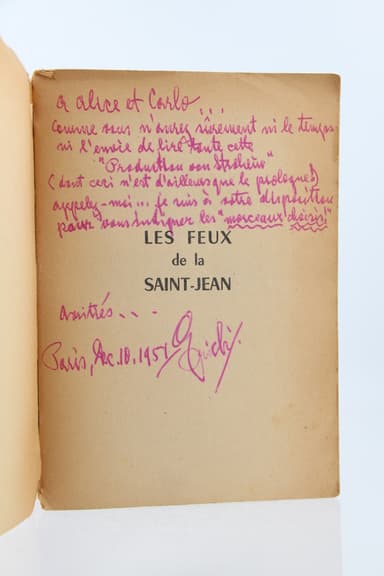 a alice et Carlo ...
Comme vous n'aurez sûrement ni le temps
ni l'envie de lire toute cette
"Production von Stroheim"
(dont ceci n'est d'ailleurs que le prologue!)
appelez-moi... je suis à votre disposition
pour vous indiquer les "morceaux choisis!"
LES FEUX
de la
SAINT-JEAN
amitiés...
Paris, Dec. 10. 1951